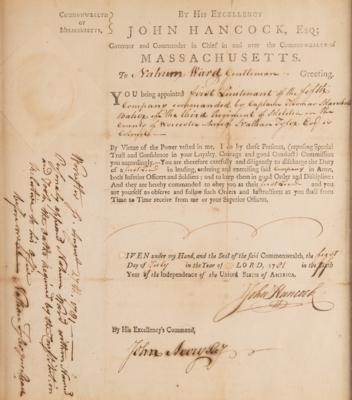 COMMONWEALTH
OF
MASSACHUSETTS,
BY HIS EXCELLENCY
JOHN HANCOCK, ESQ;
Governor and Commander in Chief in and over the COMMONWEALTH of
MASSACHUSETTS.
To Nahum Ward Gentleman Greeting.
YOU being appointed first Lieutenant of the fifth
Company commanded by Captain Thomas Marshall
Baker in the third Regiment of Militia in the
County of Worcester whereof Nathan Tyler Esq. is
Colonel
By Virtue of the Power vested in me, I do by these Presents, (reposing Special
Trust and Confidence in your Loyalty, Courage and good Conduct) Commission
you accordingly. You are therefore carefully and diligently to discharge the Duty
of a in leading, ordering and exercising said Company in Arms,
both Inferior Officers and Soldiers; and to keep them in good Order and Discipline:
And they are hereby commanded to obey you as their and you are
yourself to observe and follow such Orders and Instructions as you shall from
Time to Time receive from me or your Superior Officers.
GIVEN under my Hand, and the Seal of the said Commonwealth, the first
Day of July in the Year of LORD, 1781 in the
Year of the Independence of the UNITED STATES OF AMERICA.
John Hancock
By His Excellency's Command,
John Avery Secy
1781
Nahum Ward within Named
and by the Constitution
relation to his office